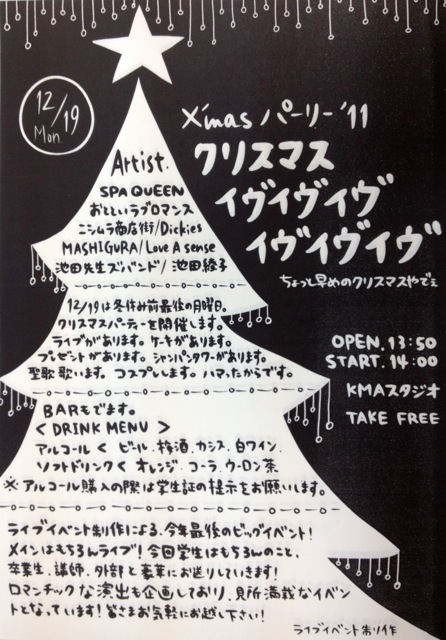 12/19
Mon.
X'mas パーリー '11
クリスマス
イヴイヴイヴ
イヴイヴイヴ
ちょっし早めのクリスマスやでぇ
OPEN. 13:50
START. 14:00
KMAスタジオ
TAKE FREE
Artist.
SPA QUEEN
おとといラブロマンス
ニシムラ商店街/Dickies
MASHIGURA/Love A sense
池田先生ズバンド/池田綾子
12/19は冬休み前最後の月曜日。
クリスマスパーティーを開催します。
ライブがあります。ケーキがあります。
プレゼントがあります。シャンパンタワーがあります。
聖歌歌います。コスプレします。ハマったからです。
BARもでます。
< DRINK MENU >
アルコール < ビール. 梅酒. カシス. 白ワイン.
ソフトドリンク < オレンジ. コーラ. ウーロン茶
※アルコール購入の際は学生証の提示をお願いします。
ライブイベント制作による、今年最後のビッグイベント!
メインはもちろんライブ! 今回学生はもちろんのこと、
卒業生、講師、外部と豪華にお送りしていきます!
ロマンチックな演出も企画しており、見所満載なイベン
トとなっています! 皆さまお気軽にお越し下さい!
ライブイベント制作